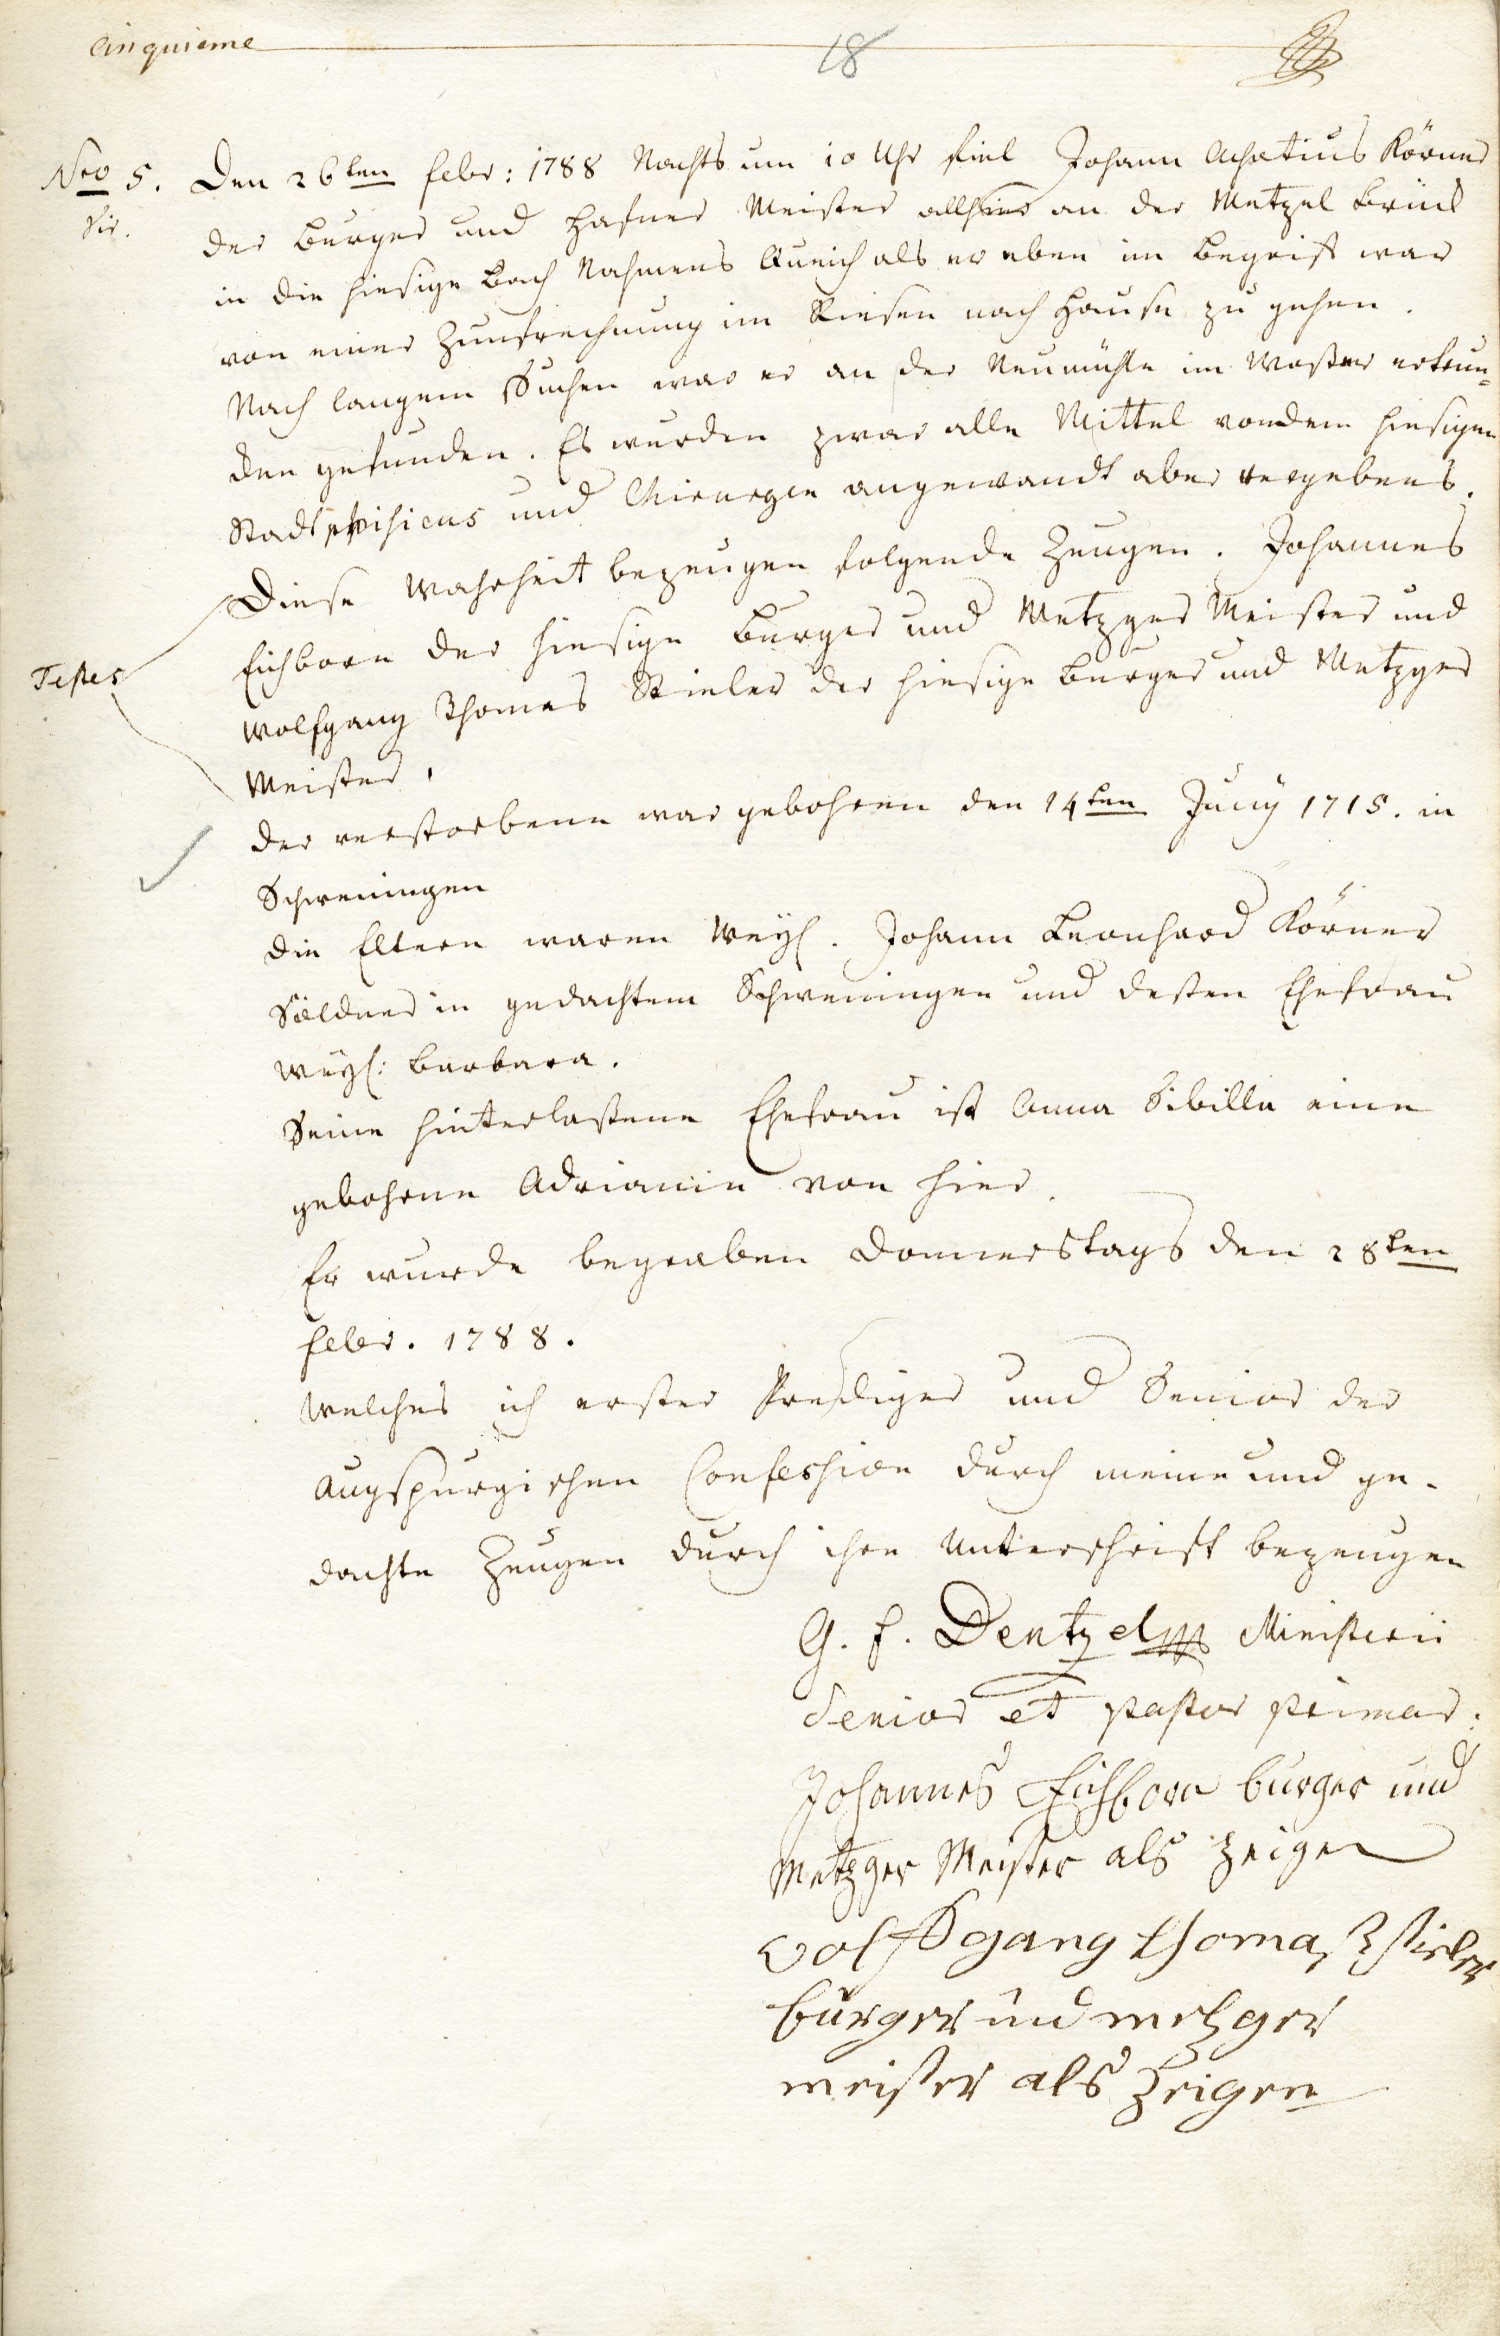 Cinquieme
18
Nro 5. Den 26ten Febr: 1788 Nachts um 10 Uhr fiel Johann Achatius Körner
der Burger und Hafner Meister allhier an der Metzel Brück
in die hiesige Bach Nahmens Queich als er eben im Begrif war
von einer Zunftrechnung im Riesen nach Hause zu gehen.
Nach langem Suchen war er an der Neumühle im Waßer ertrun=
den gefunden. Es wurden zwar alle Mittel von dem hiesigen
Stadtphisicus und Chirurgen angewandt aber vergebens.
Diese Wahrheit bezeugen folgende Zeugen. Johannes
Eichborn der hiesige Burger und Metzger Meister und
Testes
Wolfgang Thomas Stieler der hiesige Burger und Metzger
Meister,
der verstorbene war gebohren den 14ten Juny 1715. in
Schweningen
die Eltern waren Weyl. Johann Leonhard Körner
Söldner in gedachtem Schweningen und deßen Ehefrau
weyl: Barbara.
Seine hinterlaßene Ehefrau ist Anna Sibilla eine
gebohrne Adrianin von hier.
Er wurde begraben Donnerstags den 28ten
Febr. 1788.
welches ich erster Prediger und Senior der
Augspurgischen Confession durch meine und ge-
dachte Zeugen durch ihre Unterschrift bezeugen
G. F. Dentzel Ministerii
Senior et Pastor primar:
Johannes Eichborn burger und
Metzger Meister als Zeigen
Wolfgang thomas stieler
burger und metzger
meister als Zeigen